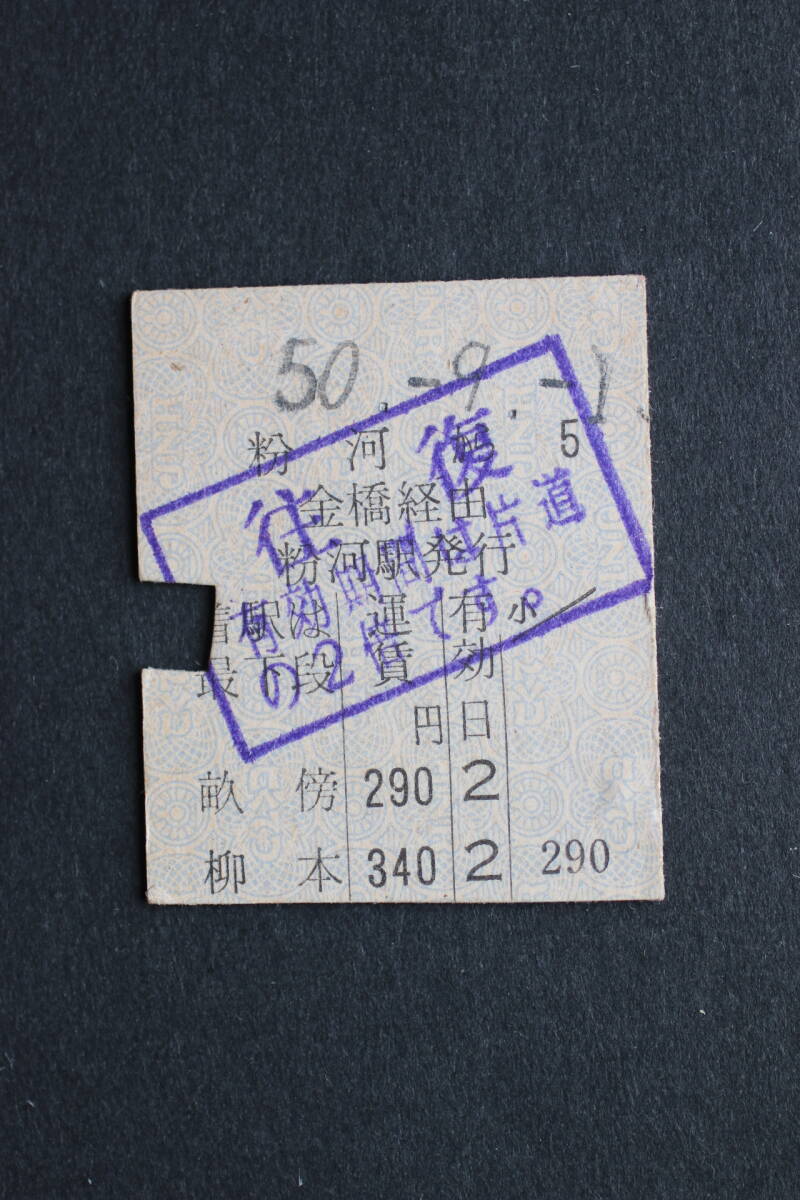 50.-9.-1
粉河から 5
往復
金橋経由
粉河駅発行
有効期間は片道
の2倍です。
着駅は 運賃 有効 小
最下段 円 日
畝傍 290 2
柳本 340 2 290